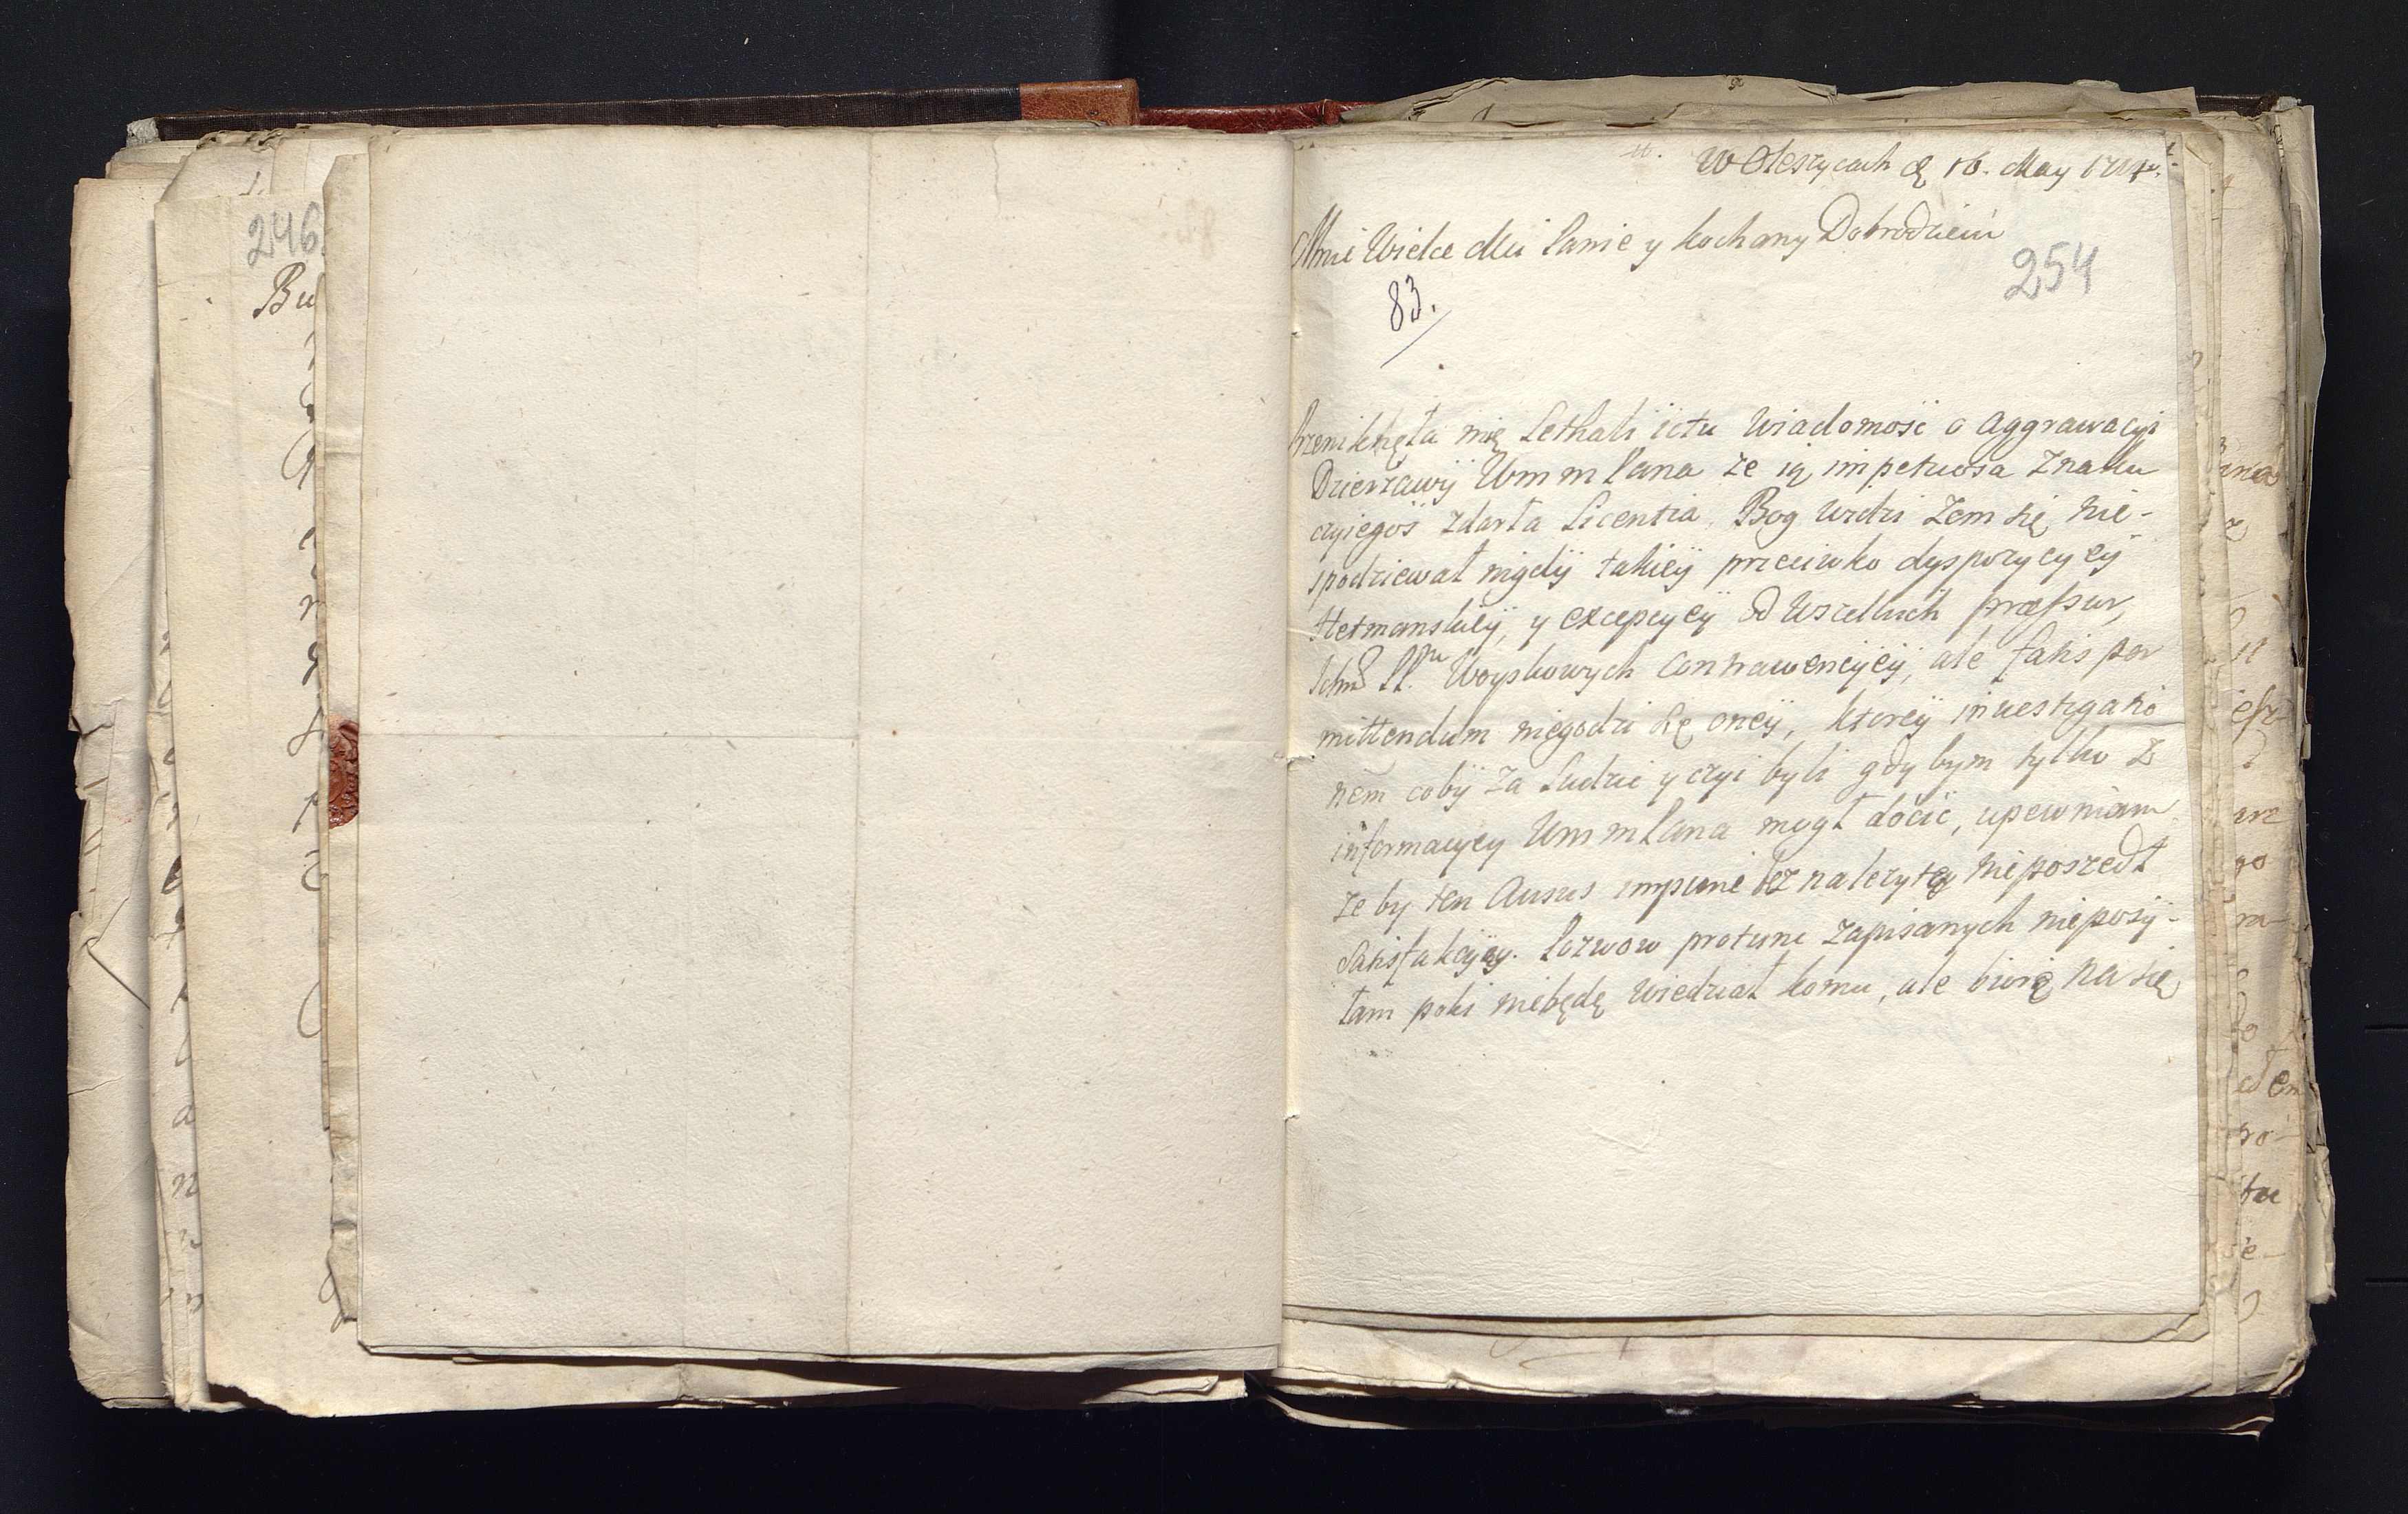 246.
Bu
W Oleszycach d. 16. May
Mnie Wielce Mci Panie y kochany Dobrodzieiu
254
83.
Przeniknęła mię Lethali ictu Wiadomość o Aggrawacyi
Dzierżawÿ Wm m Pana ze ią impetuosa Znaku
czyiegoś zdarła Licentia. Bog widzi Zem się nie-
spodziewał nigdÿ takieÿ przeciwko dyspozycyeÿ
Hetmanskieÿ, y excepcyeÿ od Wszelkich præssur,
Ichm PP. Woyskowych contrawencÿeÿ, ale satis per
mittendum niegodzi się oneÿ, ktoreÿ investigatio
nem cobÿ Za Ludzie y czyi byli gdybym tylko z
informacyey Wm m Pana mogł dociec, upewniam
ze by ten Ausus impune bez nalezytey nieposzedł
satisfakcyey. Pozwow pro tunc Zapisanych nieposÿ-
łam poki niebędę Wiedział komu, ale biorę na się